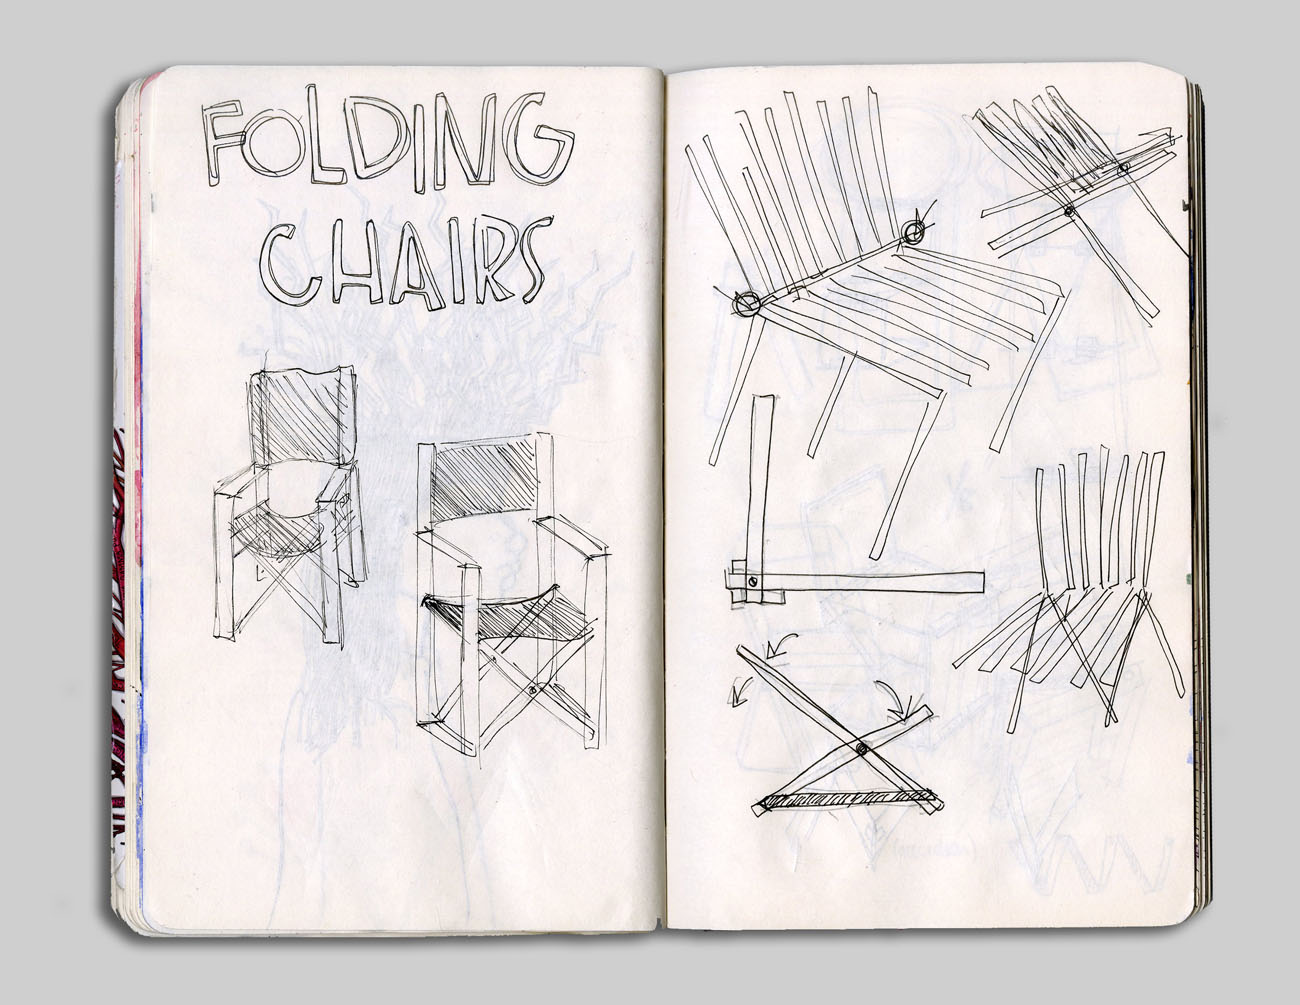 FOLDING
CHAIRS